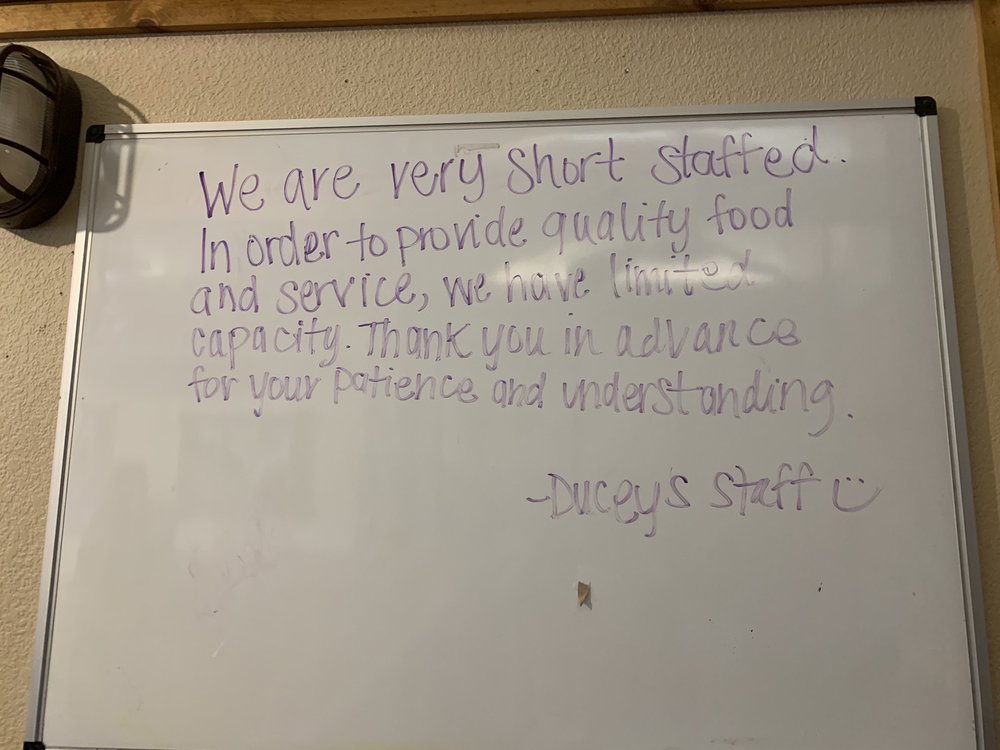 We are very short staffed.
In order to provide quality food
and service, we have limited
capacity. Thank you in advance
for your patience and understanding.
-Ducey's Staff :)